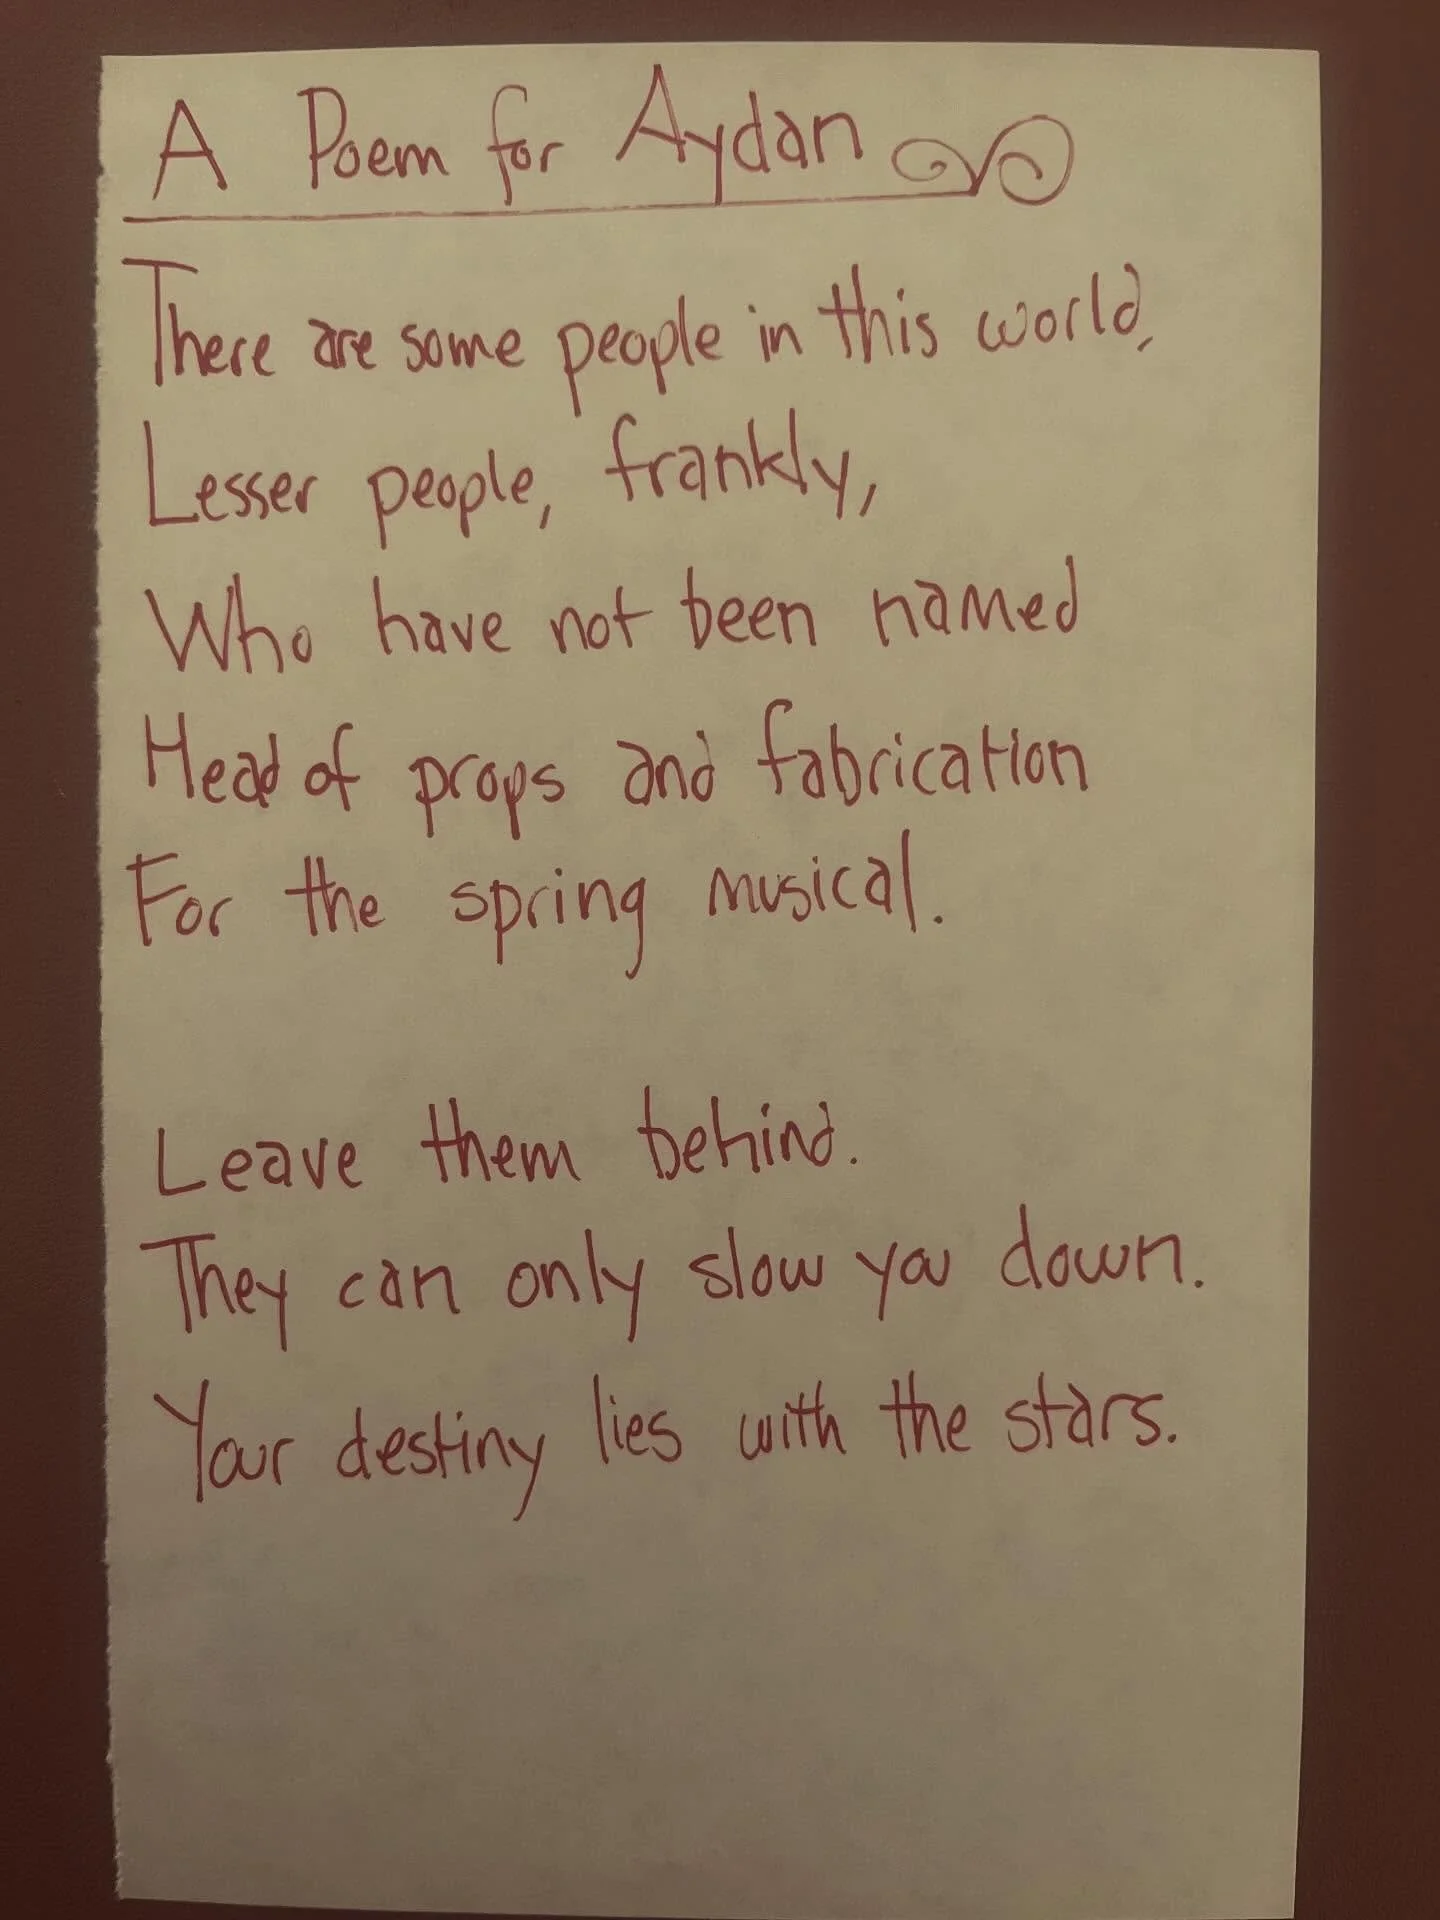 A Poem for Aydan
There are some people in this world,
Lesser people, frankly,
Who have not been named
Head of props and fabrication
For the spring musical.
Leave them behind.
They can only slow you down.
Your destiny lies with the stars.